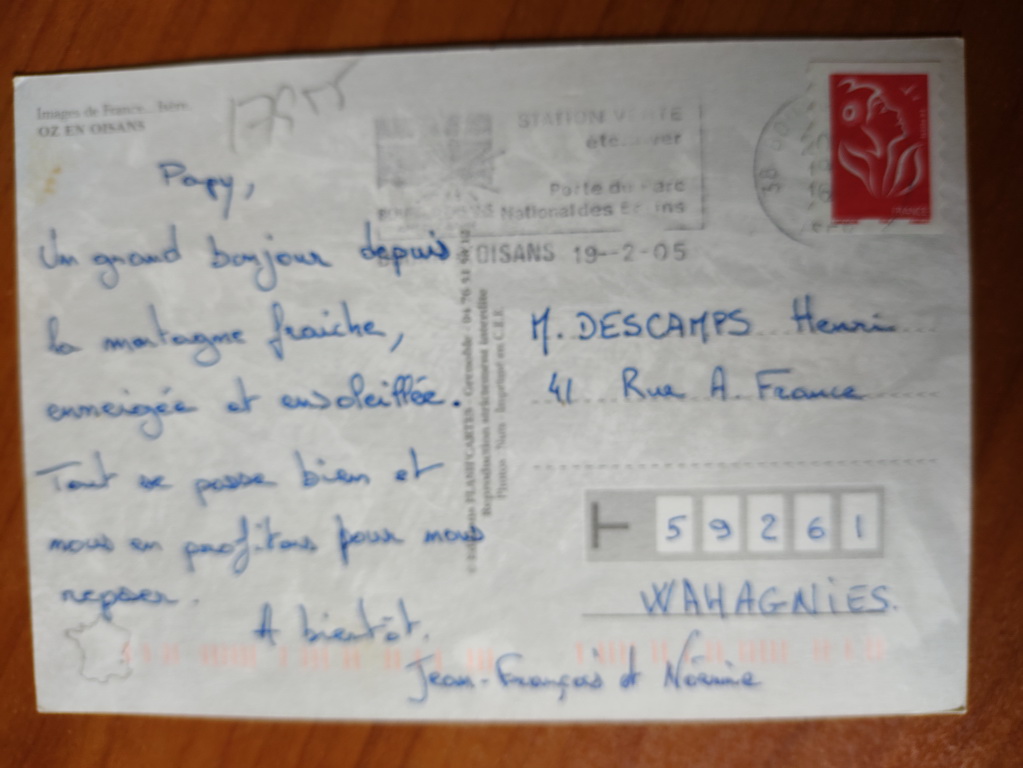 Images de France... Isère
OZ EN OISANS
STATION VERTE
Porte du Parc
National des Ecrins
OISANS 19-2-05
38
FRANCE
Papy,
Un grand bonjour depuis
la montagne fraiche,
enneigée et ensoleillée.
Tout se passe bien et
nous en profitons pour nous
reposer.
A bientôt.
Jean-François et Noémie
Grenoble - 04 76
Reproduction strictement interdite
Imprimé en C.E.E.
M. DESCAMPS Henri
41 Rue A. France
59261
WAHAGNIES.